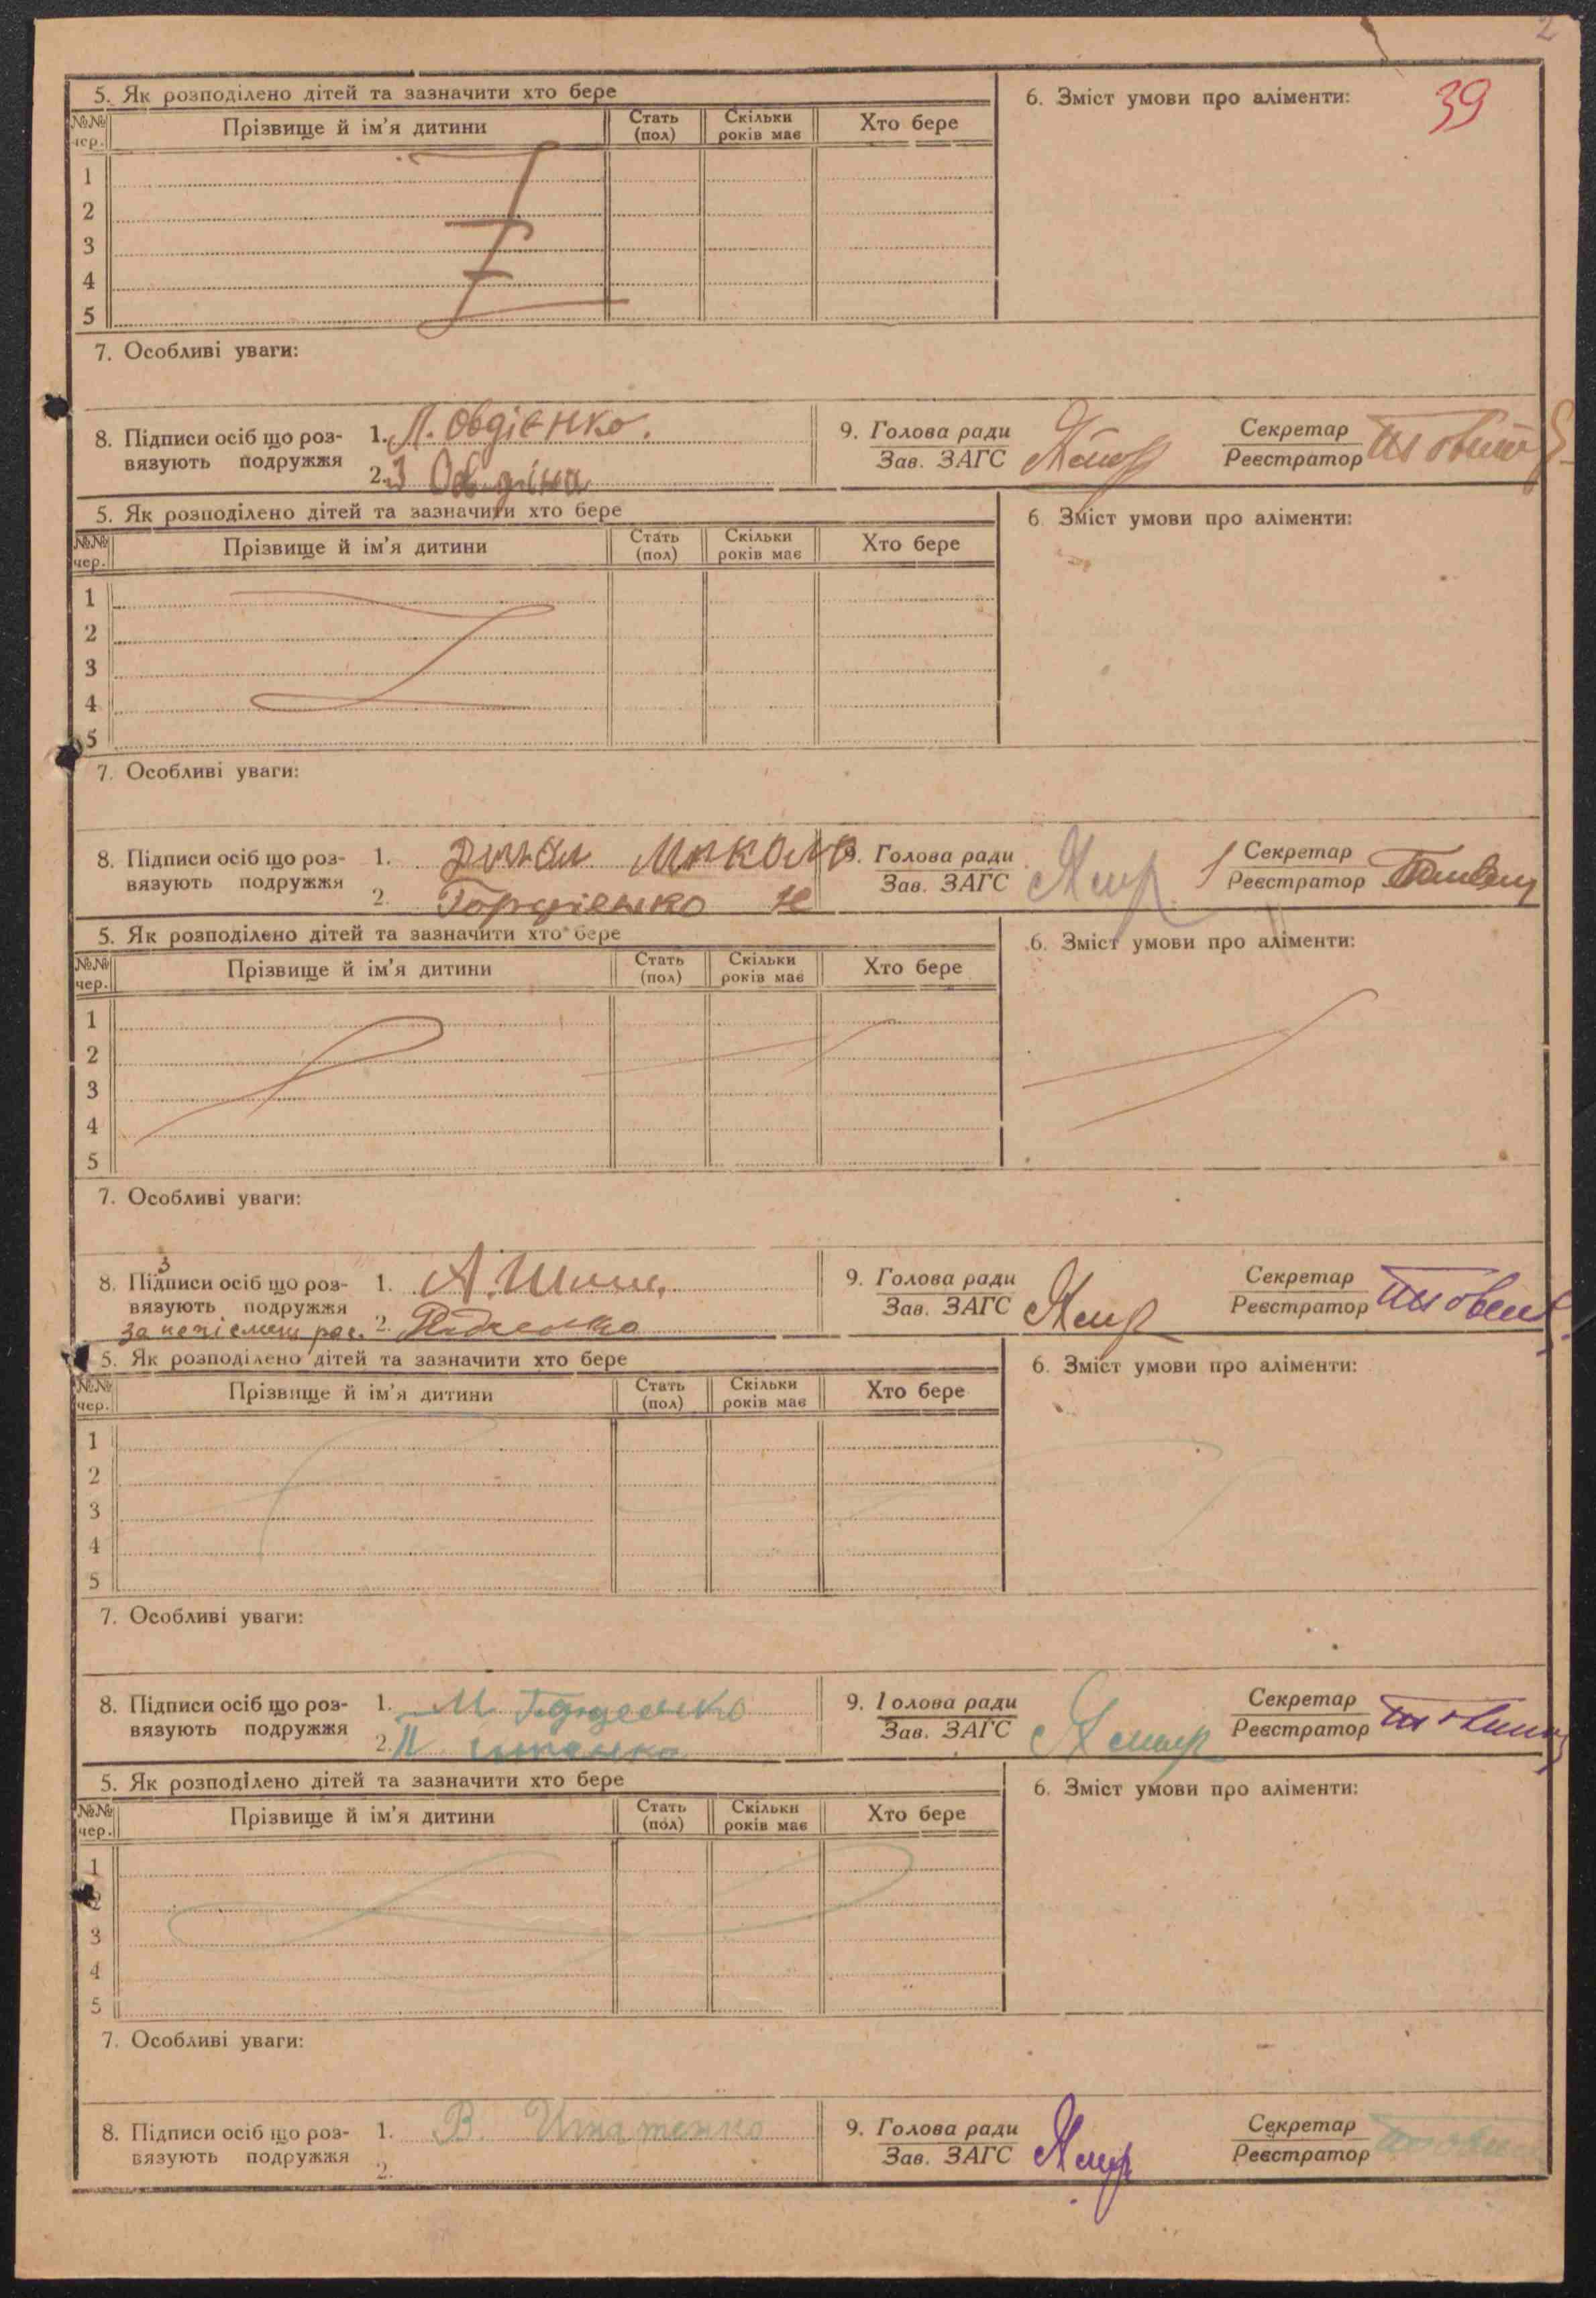 2
39
5. Як розподілено дітей та зазначити хто бере
6. Зміст умови про аліменти:
№№ чер. Прізвище й ім'я дитини Стать (пол) Скільки років має Хто бере
1
2
3
4
5
7. Особливі уваги:
8. Підписи осіб що роз- 1. Л. Овдієнко. 9. Голова ради Секретар
вязують подружжя 2. Зав. ЗАГС Реєстратор
5. Як розподілено дітей та зазначити хто бере
6 Зміст умови про аліменти:
№№ чер. Прізвище й ім'я дитини Стать (пол) Скільки років має Хто бере
1
2
3
4
5
7. Особливі уваги:
8. Підписи осіб що роз- 1. Микола 9. Голова ради Секретар
вязують подружжя 2. Гордієнко Н Зав. ЗАГС Реєстратор
5. Як розподілено дітей та зазначити хто бере
6. Зміст умови про аліменти:
№№ чер. Прізвище й ім'я дитини Стать (пол) Скільки років має Хто бере
1
2
3
4
5
7. Особливі уваги:
8. Підписи осіб що роз- 1. А. 9. Голова ради Секретар
вязують подружжя Зав. ЗАГС Реєстратор
за 2.
5. Як розподілено дітей та зазначити хто бере
6. Зміст умови про аліменти:
№№ чер. Прізвище й ім'я дитини Стать (пол) Скільки років має Хто бере
1
2
3
4
5
7. Особливі уваги:
8. Підписи осіб що роз- 1. М. 9. Голова ради Секретар
вязують подружжя 2. Зав. ЗАГС Реєстратор
5. Як розподілено дітей та зазначити хто бере
6. Зміст умови про аліменти:
№№ чер. Прізвище й ім'я дитини Стать (пол) Скільки років має Хто бере
1
2
3
4
5
7. Особливі уваги:
8. Підписи осіб що роз- 1. В. Ігнатенко 9. Голова ради Секретар
вязують подружжя 2. Зав. ЗАГС Реєстратор